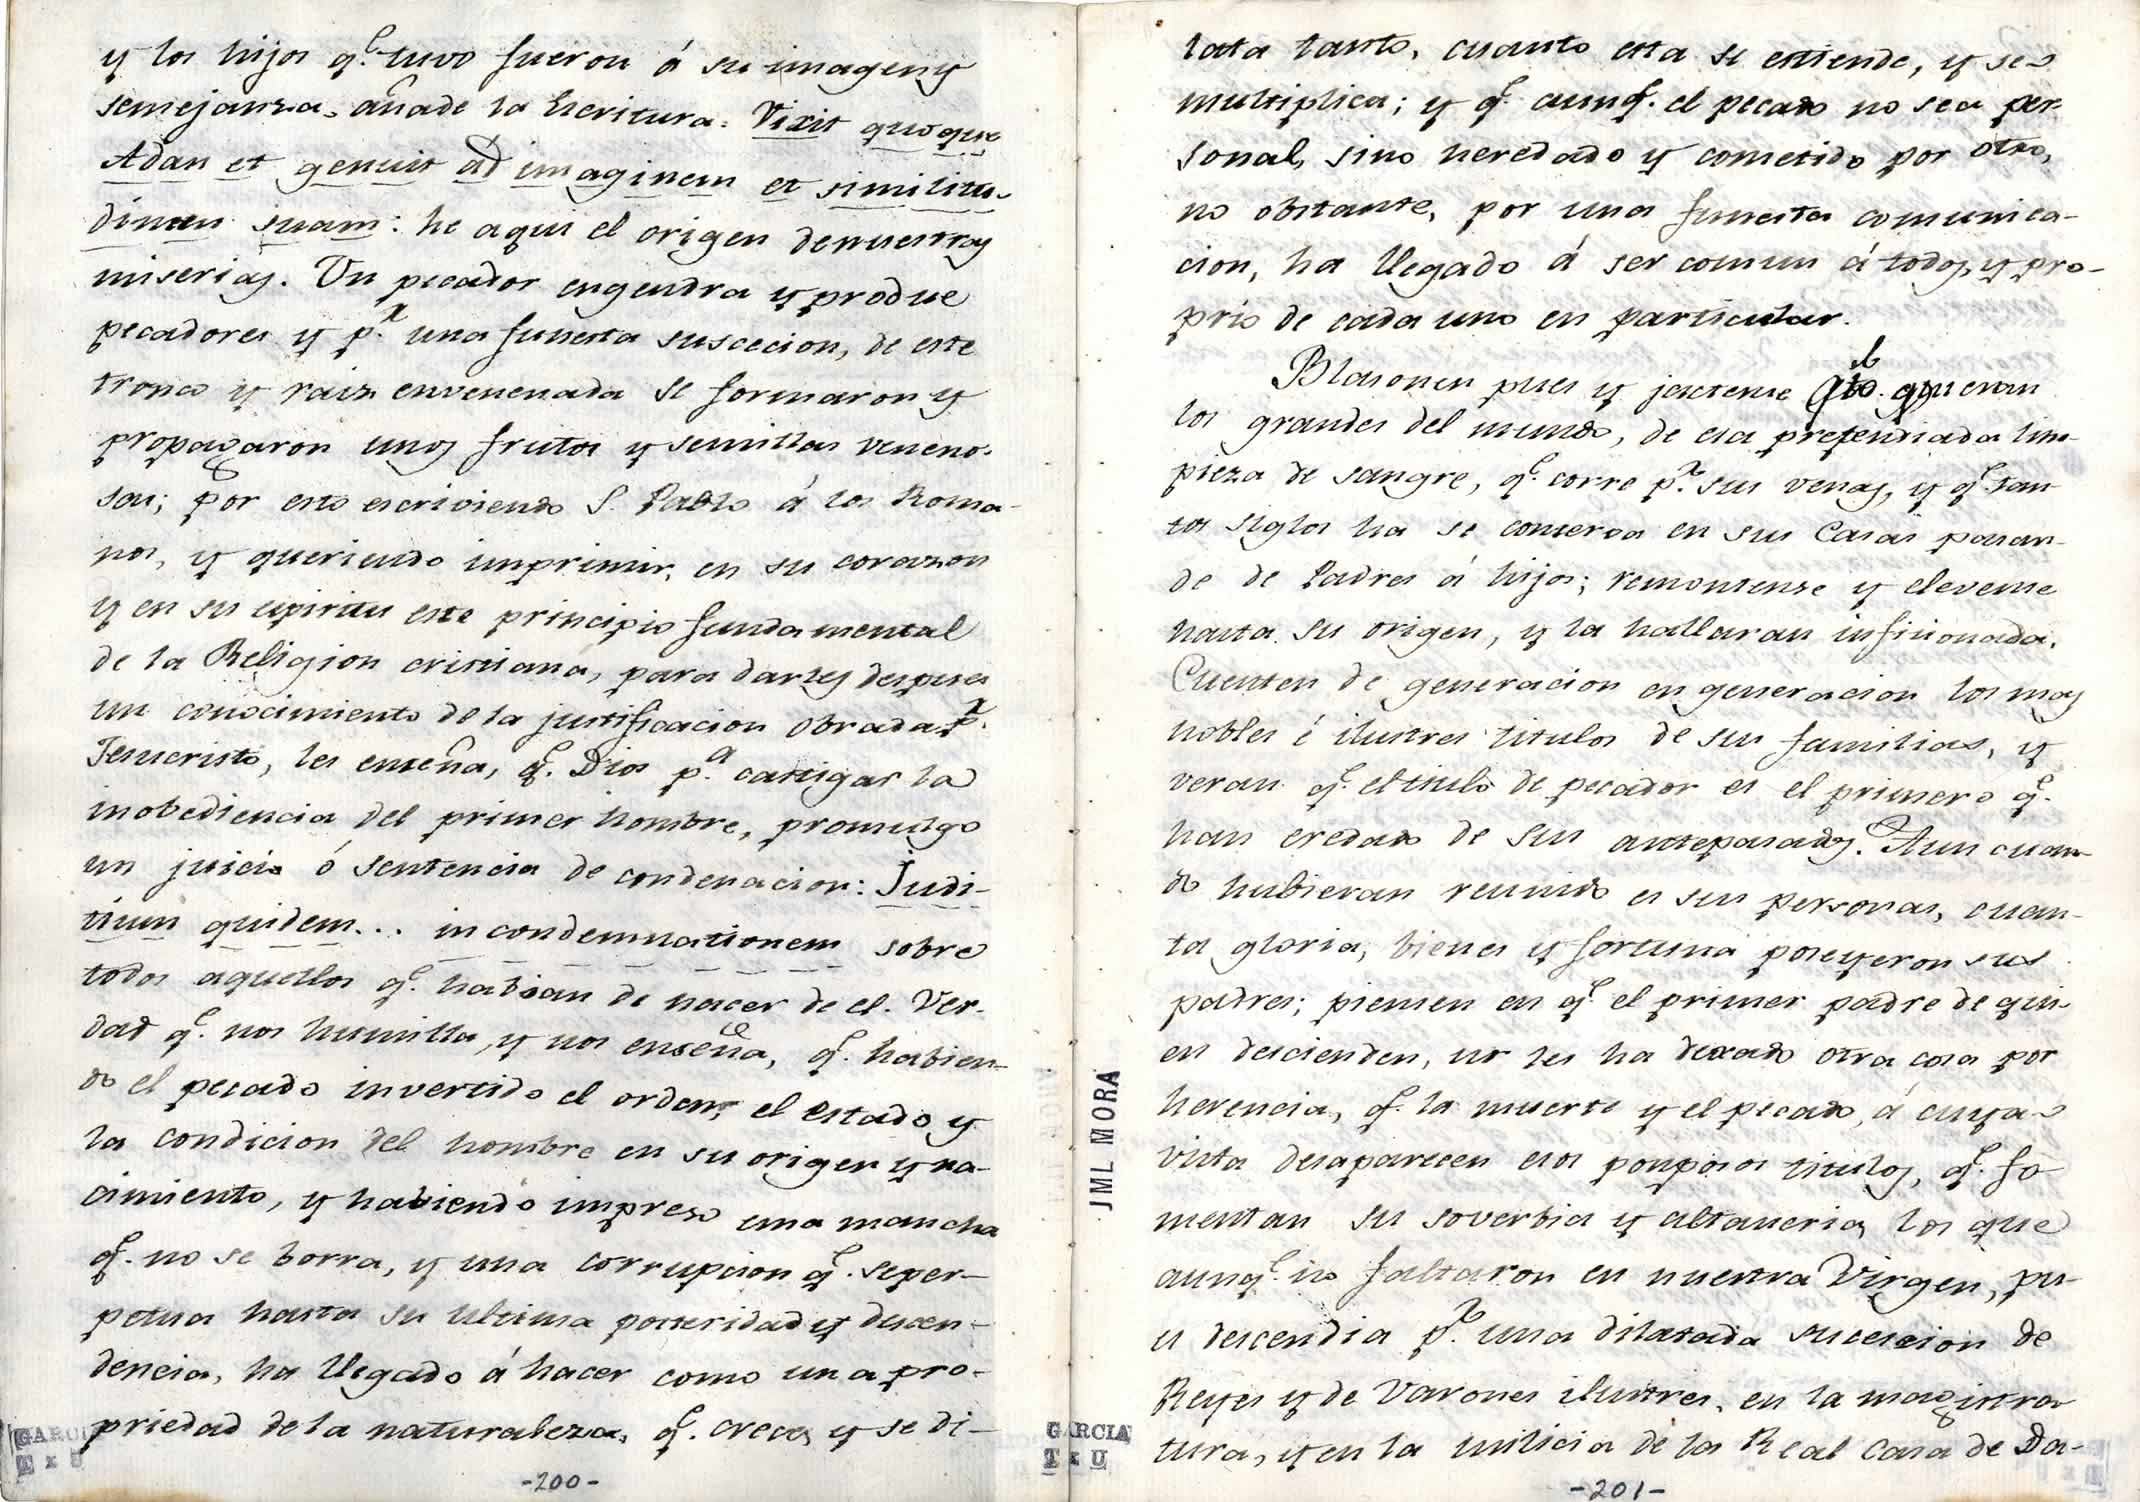 y los hijos q.e tuvo fueron á su imagen y
semejanza, añade la Escritura: Vixit quoque
Adan et genuit ad imaginem et similitu-
dinem suam: he aqui el origen de nuestras
miserias. Un pecador engendra y produce
pecadores y p.r una funesta suscecion, de este
tronco y raiz envenenada se formaron y
propagaron unos frutos y semillas veneno-
sas; por esto escriviendo S. Pablo á los Roma-
nos, y queriendo imprimir, en su corazon
y en su espiritu este principio fundamental
de la Religion cristiana, para darles despues
un conocimiento de la justificacion obrada p.r
Jesucristo, les enseña, q.e Dios p.a castigar la
inobediencia del primer hombre, promulgo
un juicio ó sentencia de condenacion: Judi-
tium quidem... in condemnationem sobre
todos aquellos q.e habian de nacer de el. Ver-
dad q.e nos humilla, y nos enseña, q.e habien-
do el pecado invertido el orden, el estado y
la condicion del hombre en su origen y na-
cimiento, y habiendo impreso una mancha
q.e no se borra, y una corrupcion q.e se per-
petua hasta su ultima posteridad y descen-
dencia, ha llegado á hacer como una pro-
priedad de la naturaleza, q.e crece, y se di-
-200-
GARCIA
T x U
lata tanto, cuanto esta se estiende, y se
multiplica; y q.e aunq.e el pecado no sea per-
sonal, sino heredado y cometido por otro,
no obstante, por una funesta comunica-
cion, ha llegado á ser comun á todos, y pro-
prio de cada uno en particular.
Blasonen pues y jactense qto. quieran
los grandes del mundo, de esa pretendiada lim-
pieza de sangre, q.e corre p.r sus venas, y q.e tan
tos siglos ha se conserva en sus Casas pasan-
do de Padres á hijos; remontense y elevense
hasta su origen, y la hallaran inficionada.
Cuenten de generacion en generacion los mas
nobles é ilustres titulos de sus familias, y
veran q.e el titulo de pecador es el primero q.e
han eredado de sus antepasados. Aun cuan-
do hubieran reunido es sus personas, cuan-
ta gloria, bienes y fortuna poseyeron sus
padres; piensen en q.e el primer padre de qui-
en descienden, no les ha dexado otra cosa por
herencia, q.e la muerte y el pecado, á cuya
vista desaparecen esos pomposos titulos, q.e fo
mentan su soverbia y altaneria, los que
aunq.e no faltaron en nuestra Virgen, pu-
es descendia p.r una dilatada sucesion de
Reyes y de Varones ilustres, en la magistra
tura, y en la milicia de la Real casa de Da-
-201-
JML MORA
GARCIA
T x U